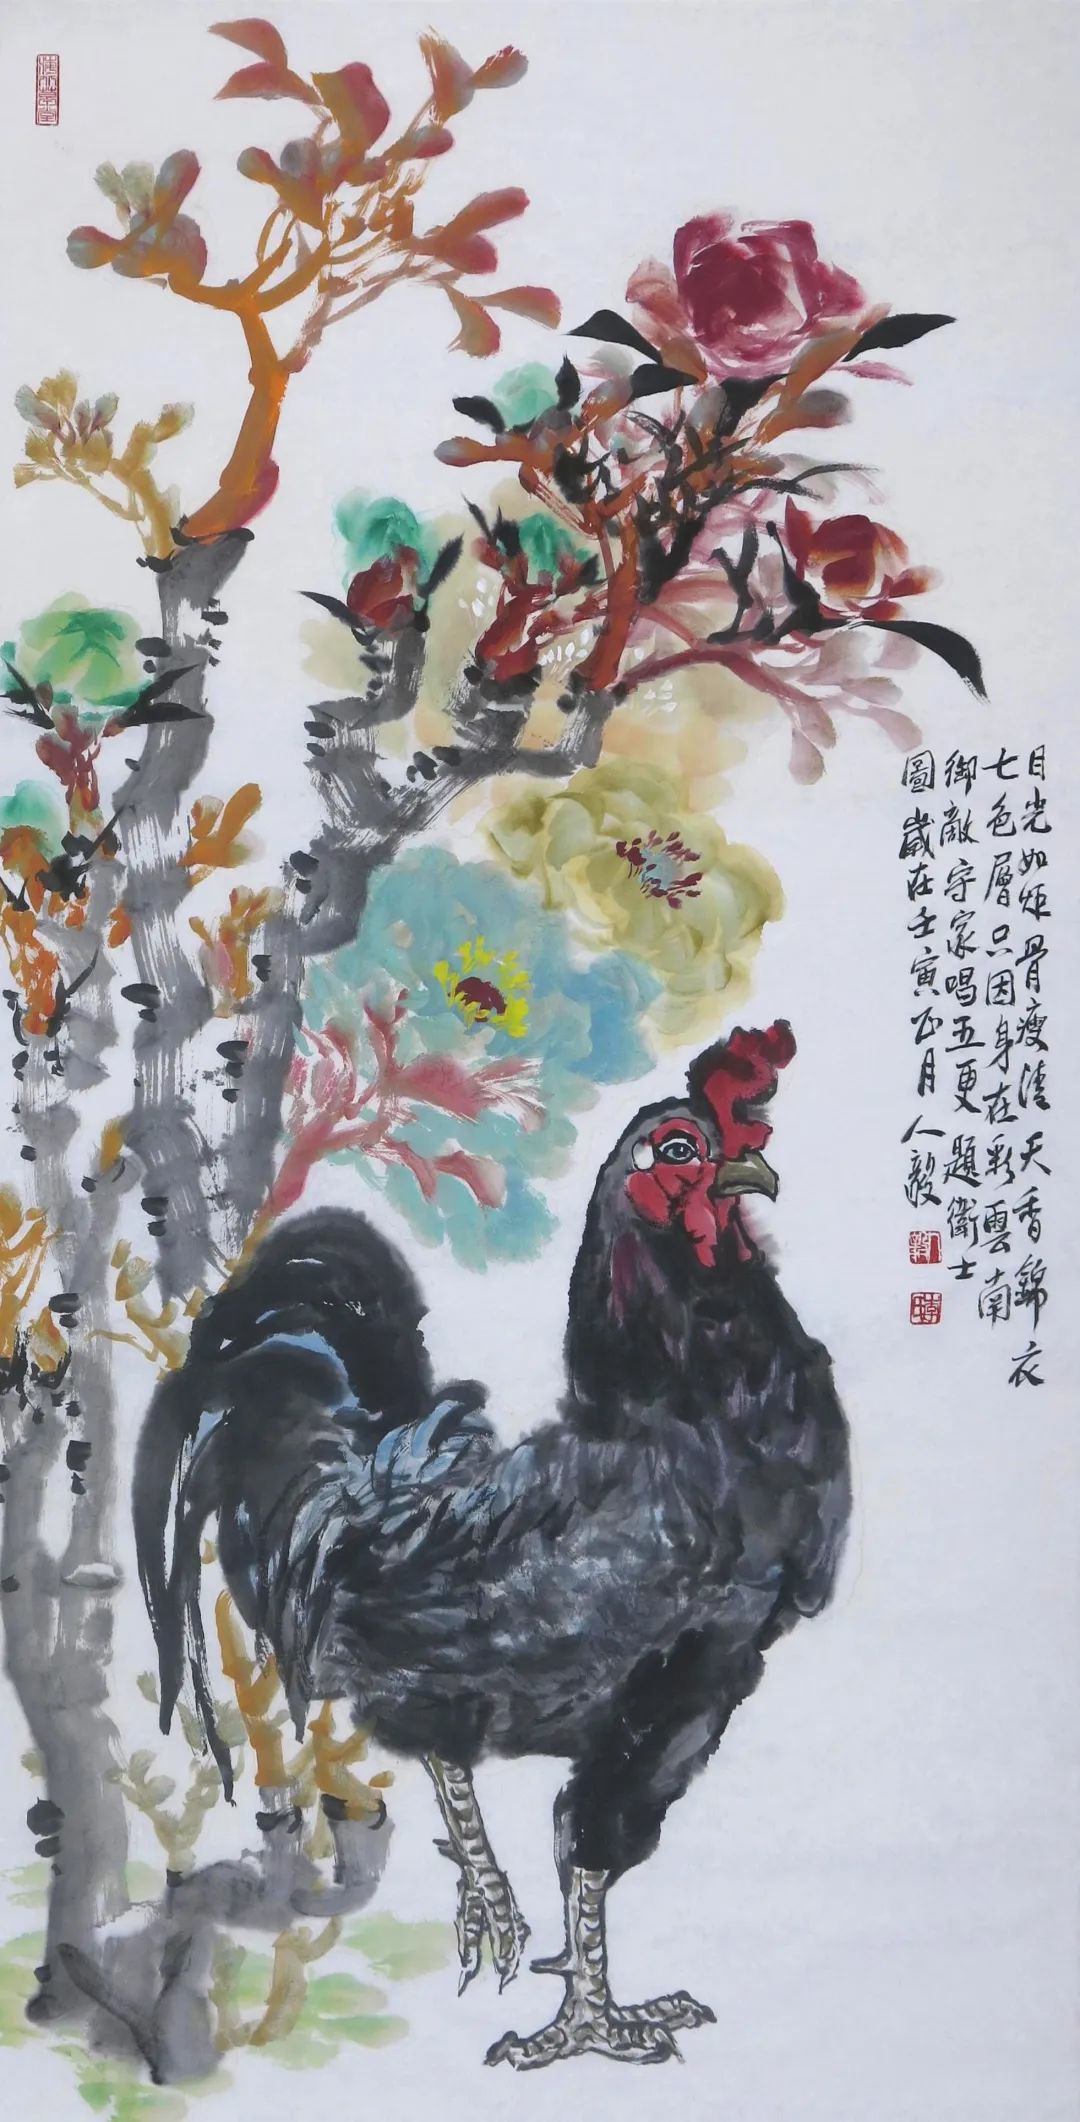 目光如炬骨瘦清天香錦衣
七色層只因身在彩雲南
御敵守家唱五更題衛士
圖歲在壬寅正月人毅